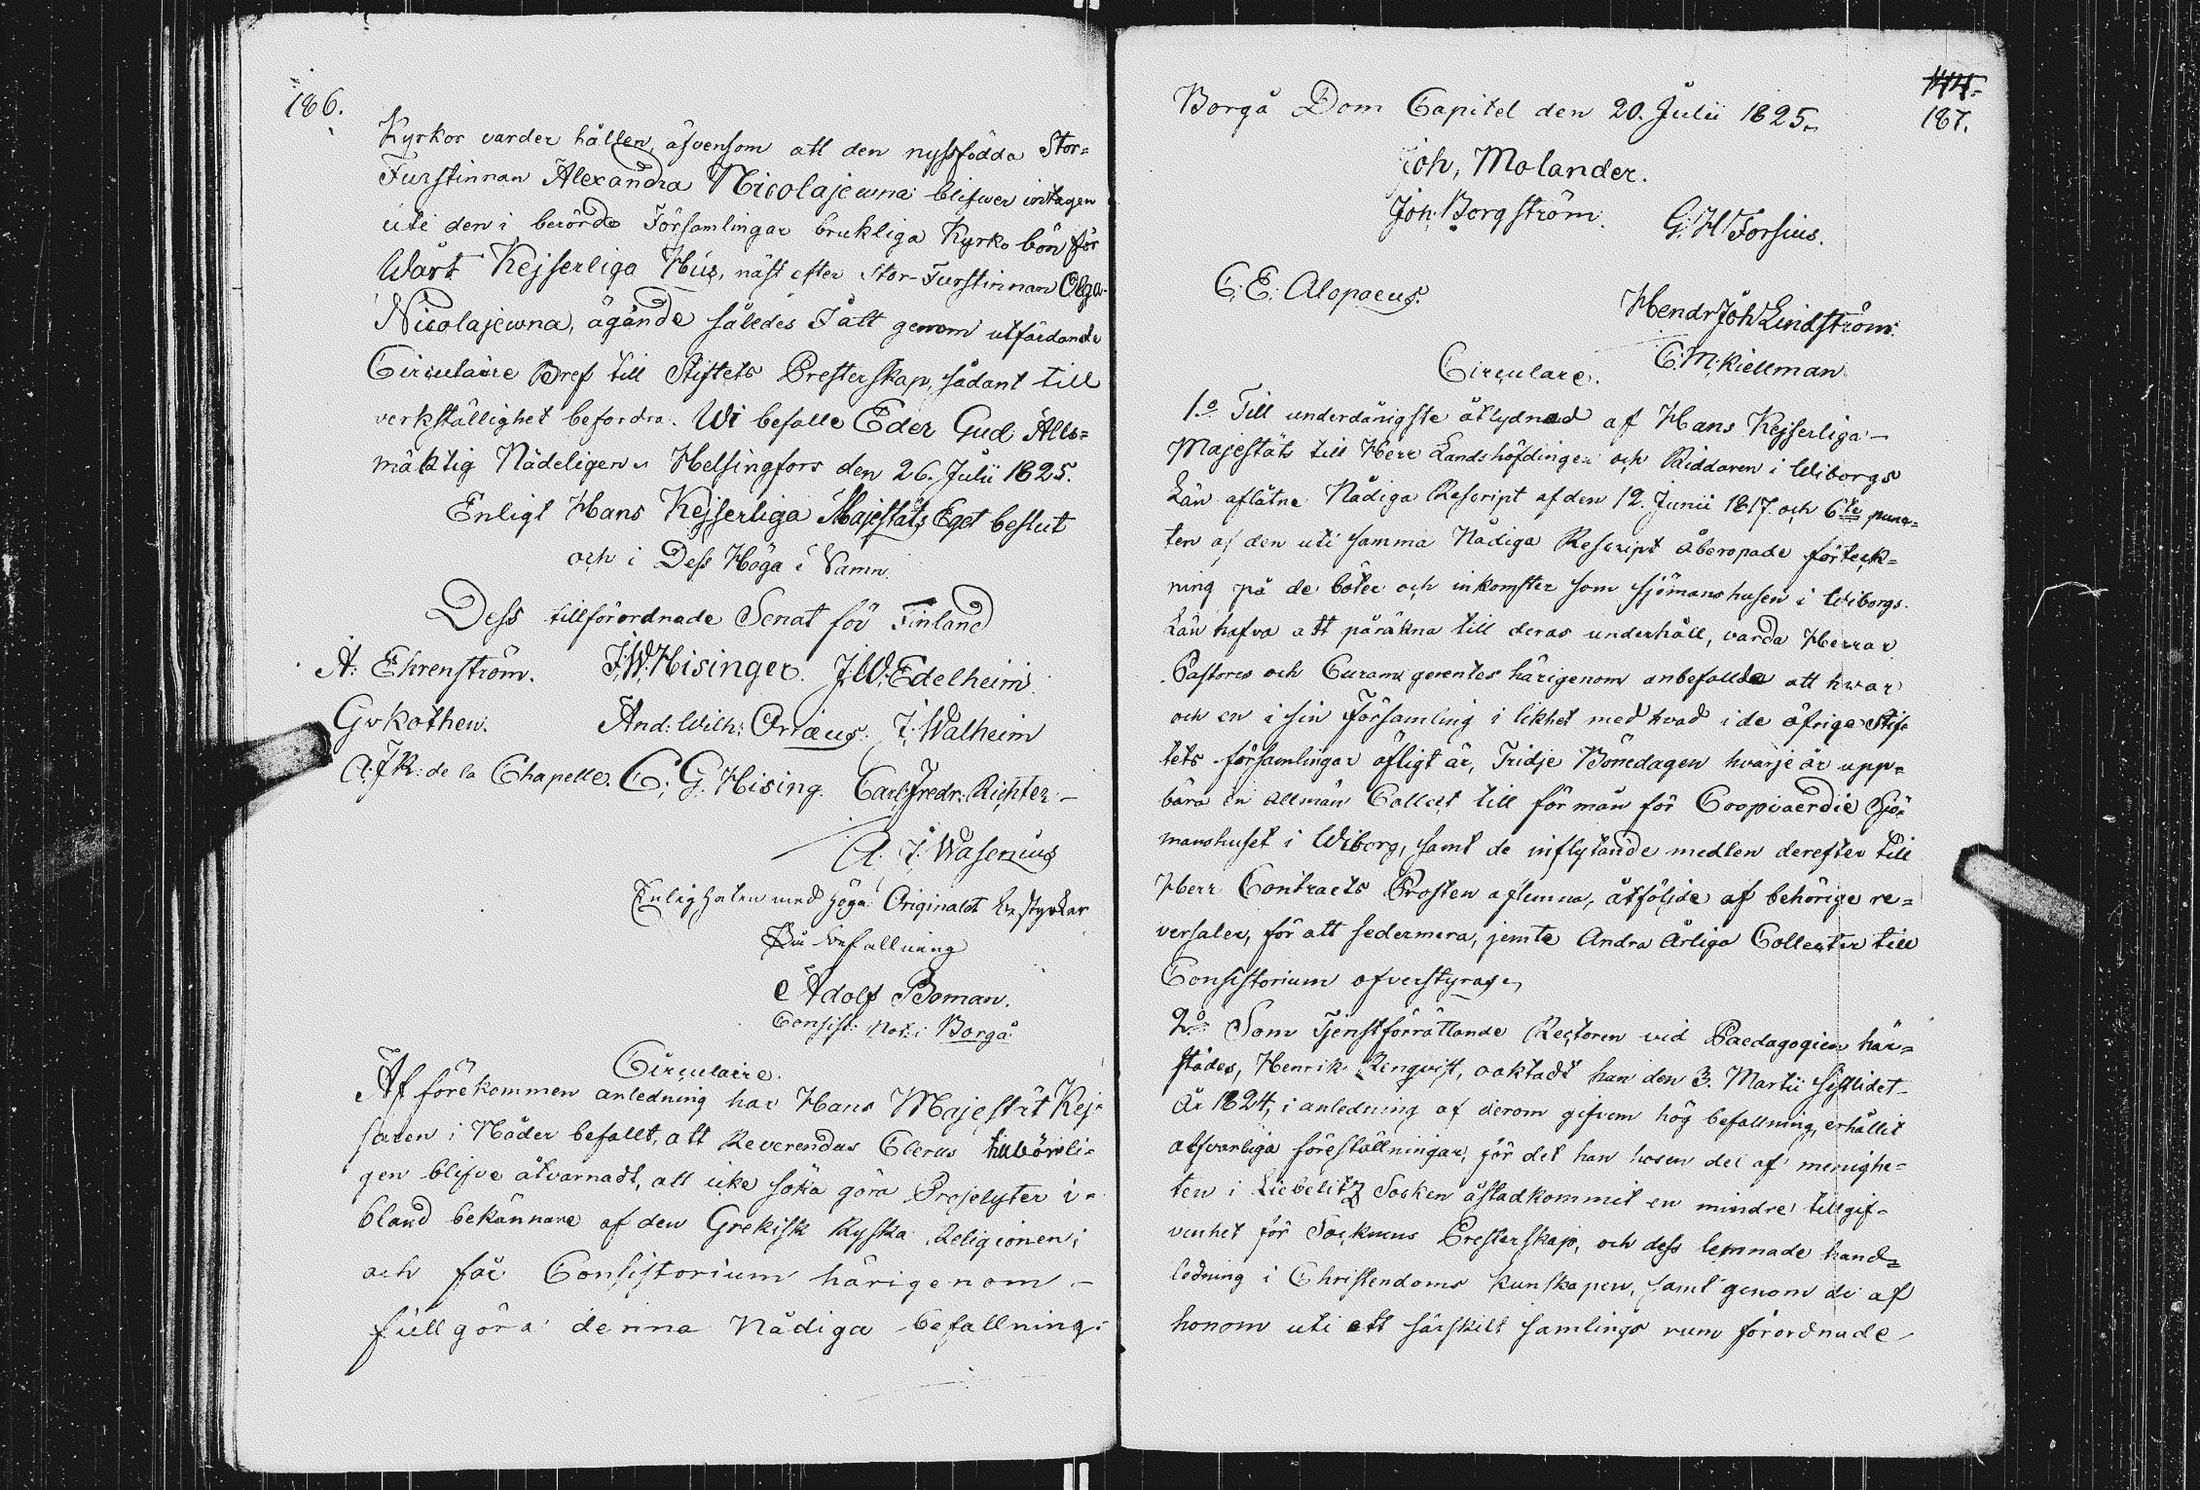 186.
Kyrkor varder hållen, äfvensom att den nyssfödda Stor=
Furstinnan Alexandra Nicolajewna blifver intagen
uti den i berörde Församlingar brukliga Kyrko bön för
Wårt Kejserliga Hus, näst efter Stor-Furstinnan Olga
Nicolajewna, ägande således I att genom utfärdande
Circulaire Bref till Stiftets Presterskap, sådant till
verkställighet befordra. Wi befalle Eder Gud Alls=
mäktig Nådeligen. Helsingfors den 26. Julii 1825.
Enligt Hans Kejserliga Majestäts Eget beslut
och i Dess Höga Namn.
Dess tillförordnade Senat för Finland
A: Ehrenström. J.W. Hisinger. J.W. Edelheim.
G v Kothen. And: Wilh: Orræus. J. Walheim
A.F.R: de la Chapelle. C: G. Hising. Carl Fredr: Richter –
A. J. Wasenius
Enligheten med höga Originalet bestyrker
På befallning
Adolf Boman.
Consist: Not: i Borgå
Circulaire.
Af förekommen anledning har Hans Majestät Kej=
saren i Nåder befallt, att Reverendus Clerus tillbörli=
gen blifve åtvarnadt, att icke söka göra Proselyter i=
bland bekännare af den Grekisk Ryska Religionen;
och får Consistorium härigenom –
fullgöra denna Nådiga befallning.
187.
Borgå Dom Capitel den 20. Julii 1825.
Joh, Molander.
Joh. Borgström. G. H Forsius.
C. E. Alopaeus.
Hendr Joh Lindström.
Circulare. C. M. Kiellman
1:o Till underdånigste åtlydnad af Hans Kejserliga –
Majestäts till Herr Landshöfdingen och Riddaren i Wiborgs
Län aflåtne Nådiga Rescript af den 12. Junii 1817. och 6:te punc=
ten af den uti samma Nådiga Rescript åberopade förteck=
ning på de böter och inkomster som sjömanshusen i Wiborgs
Län hafva att påräkna till deras underhåll, varda Herrar
Pastores och Curam gerentes härigenom anbefallde att hvar
och en i sin Församling i likhet med hvad i de öfrige Stif=
tets församlingar öfligt är, Tridje Bönedagen hvarje år upp=
bära en allmän Collect till förmån för Coopvaerdie Sjö=
manshuset i Wiborg, samt de inflytande medlen derefter till
Herr Contracts Prosten aflemna, åtföljde af behörige re=
versaler, för att sedermera, jemte Andra Årliga Collecter till
Consistorium öfverstyras.
2:o Som Tjenstförrättande Rectoren vid Paedagogien här=
städes, Henrik Renqvist, oaktadt han den 3. Martii sistlidet
År 1824, i anledning af derom gifven hög befallning, erhållit
alfvarliga föreställningar, för det han hosen del af menighe=
ten i Liebelitz Socken åstadkommit en mindre tillgif=
venhet för Socknens Presterskap, och dess lemnade hand=
ledning i Christendoms kunskapen, samt genom de af
honom uti ett särskilt samlings rum förordnade